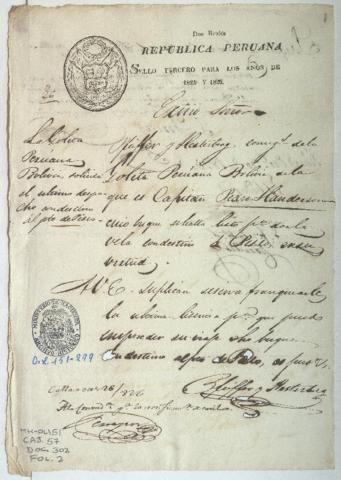 Dos Reales
REPUBLICA PERUANA
SELLO TERCERO PARA LOS AÑOS DE
1825 Y 1826.
Exmo Señor
La Goleta
Peruana
Bolivar solicita
el ultimo despa-
cho con destino
al pto de Pisco
y Hesterberg consig.s de la
Goleta Peruana Bolivar de la
que es Capitan Pedro Handerson
cuio buque se halla listo p.a dar la
vela con destino a Pisco en su
virtud
A V.E. suplican se sirva franquearle
la ultima licencia p.a que pueda
emprender su viaje dho buque
con destino al pto de Pisco, es just.a
y Hesterberg
Callao 26/826
MINISTERIO DE HACIENDA
O.L. 151-299
MH-OL151
CAJ. 57
DOC. 302
FOL. 2